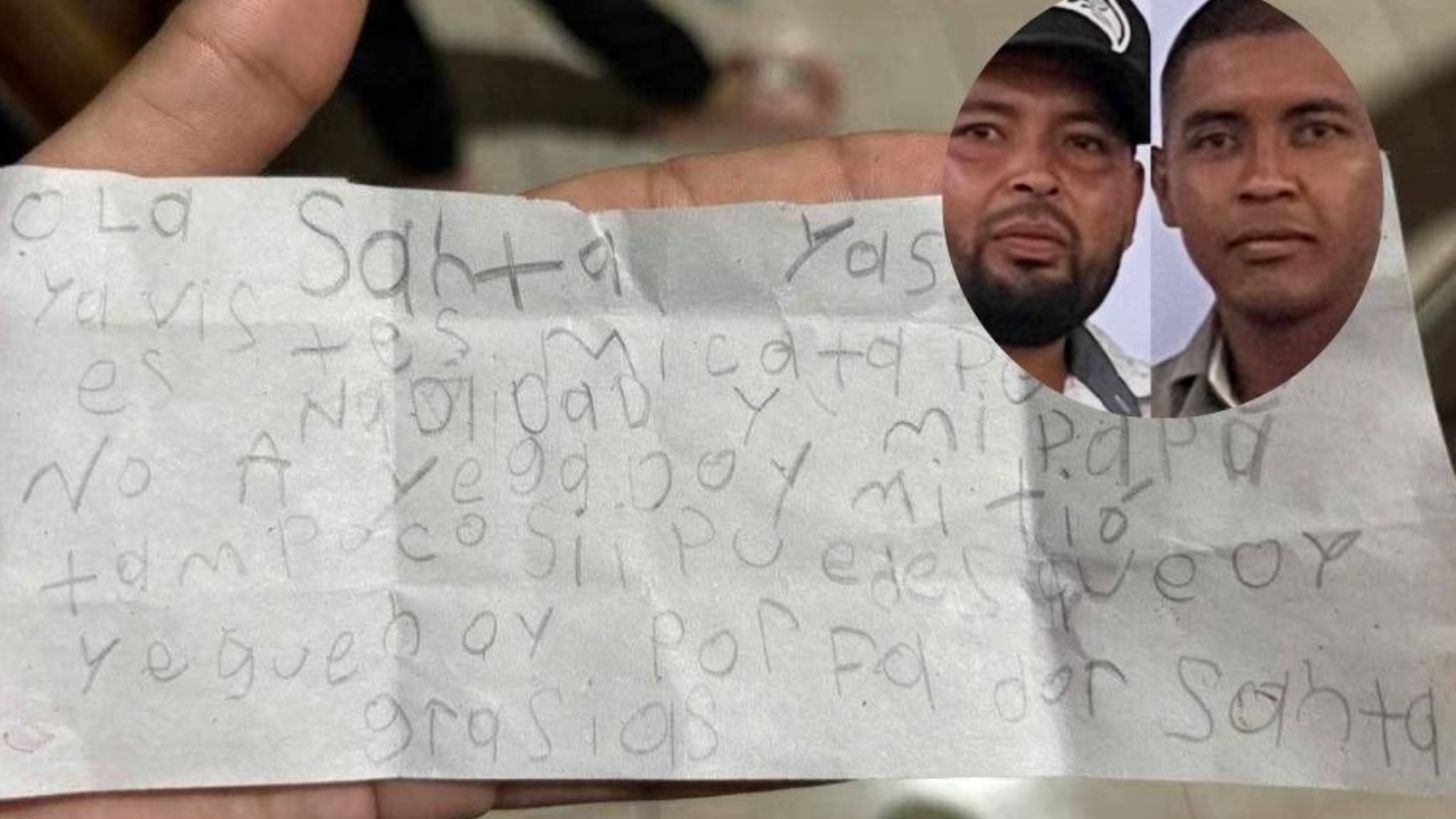 OLa Santa Yas
ya vistes mi cata
es Nabidad y mi papá
No A yegado y mi tió
tampoco Sii puedes que oy
yeguen oy por fa dor Santa
grasias